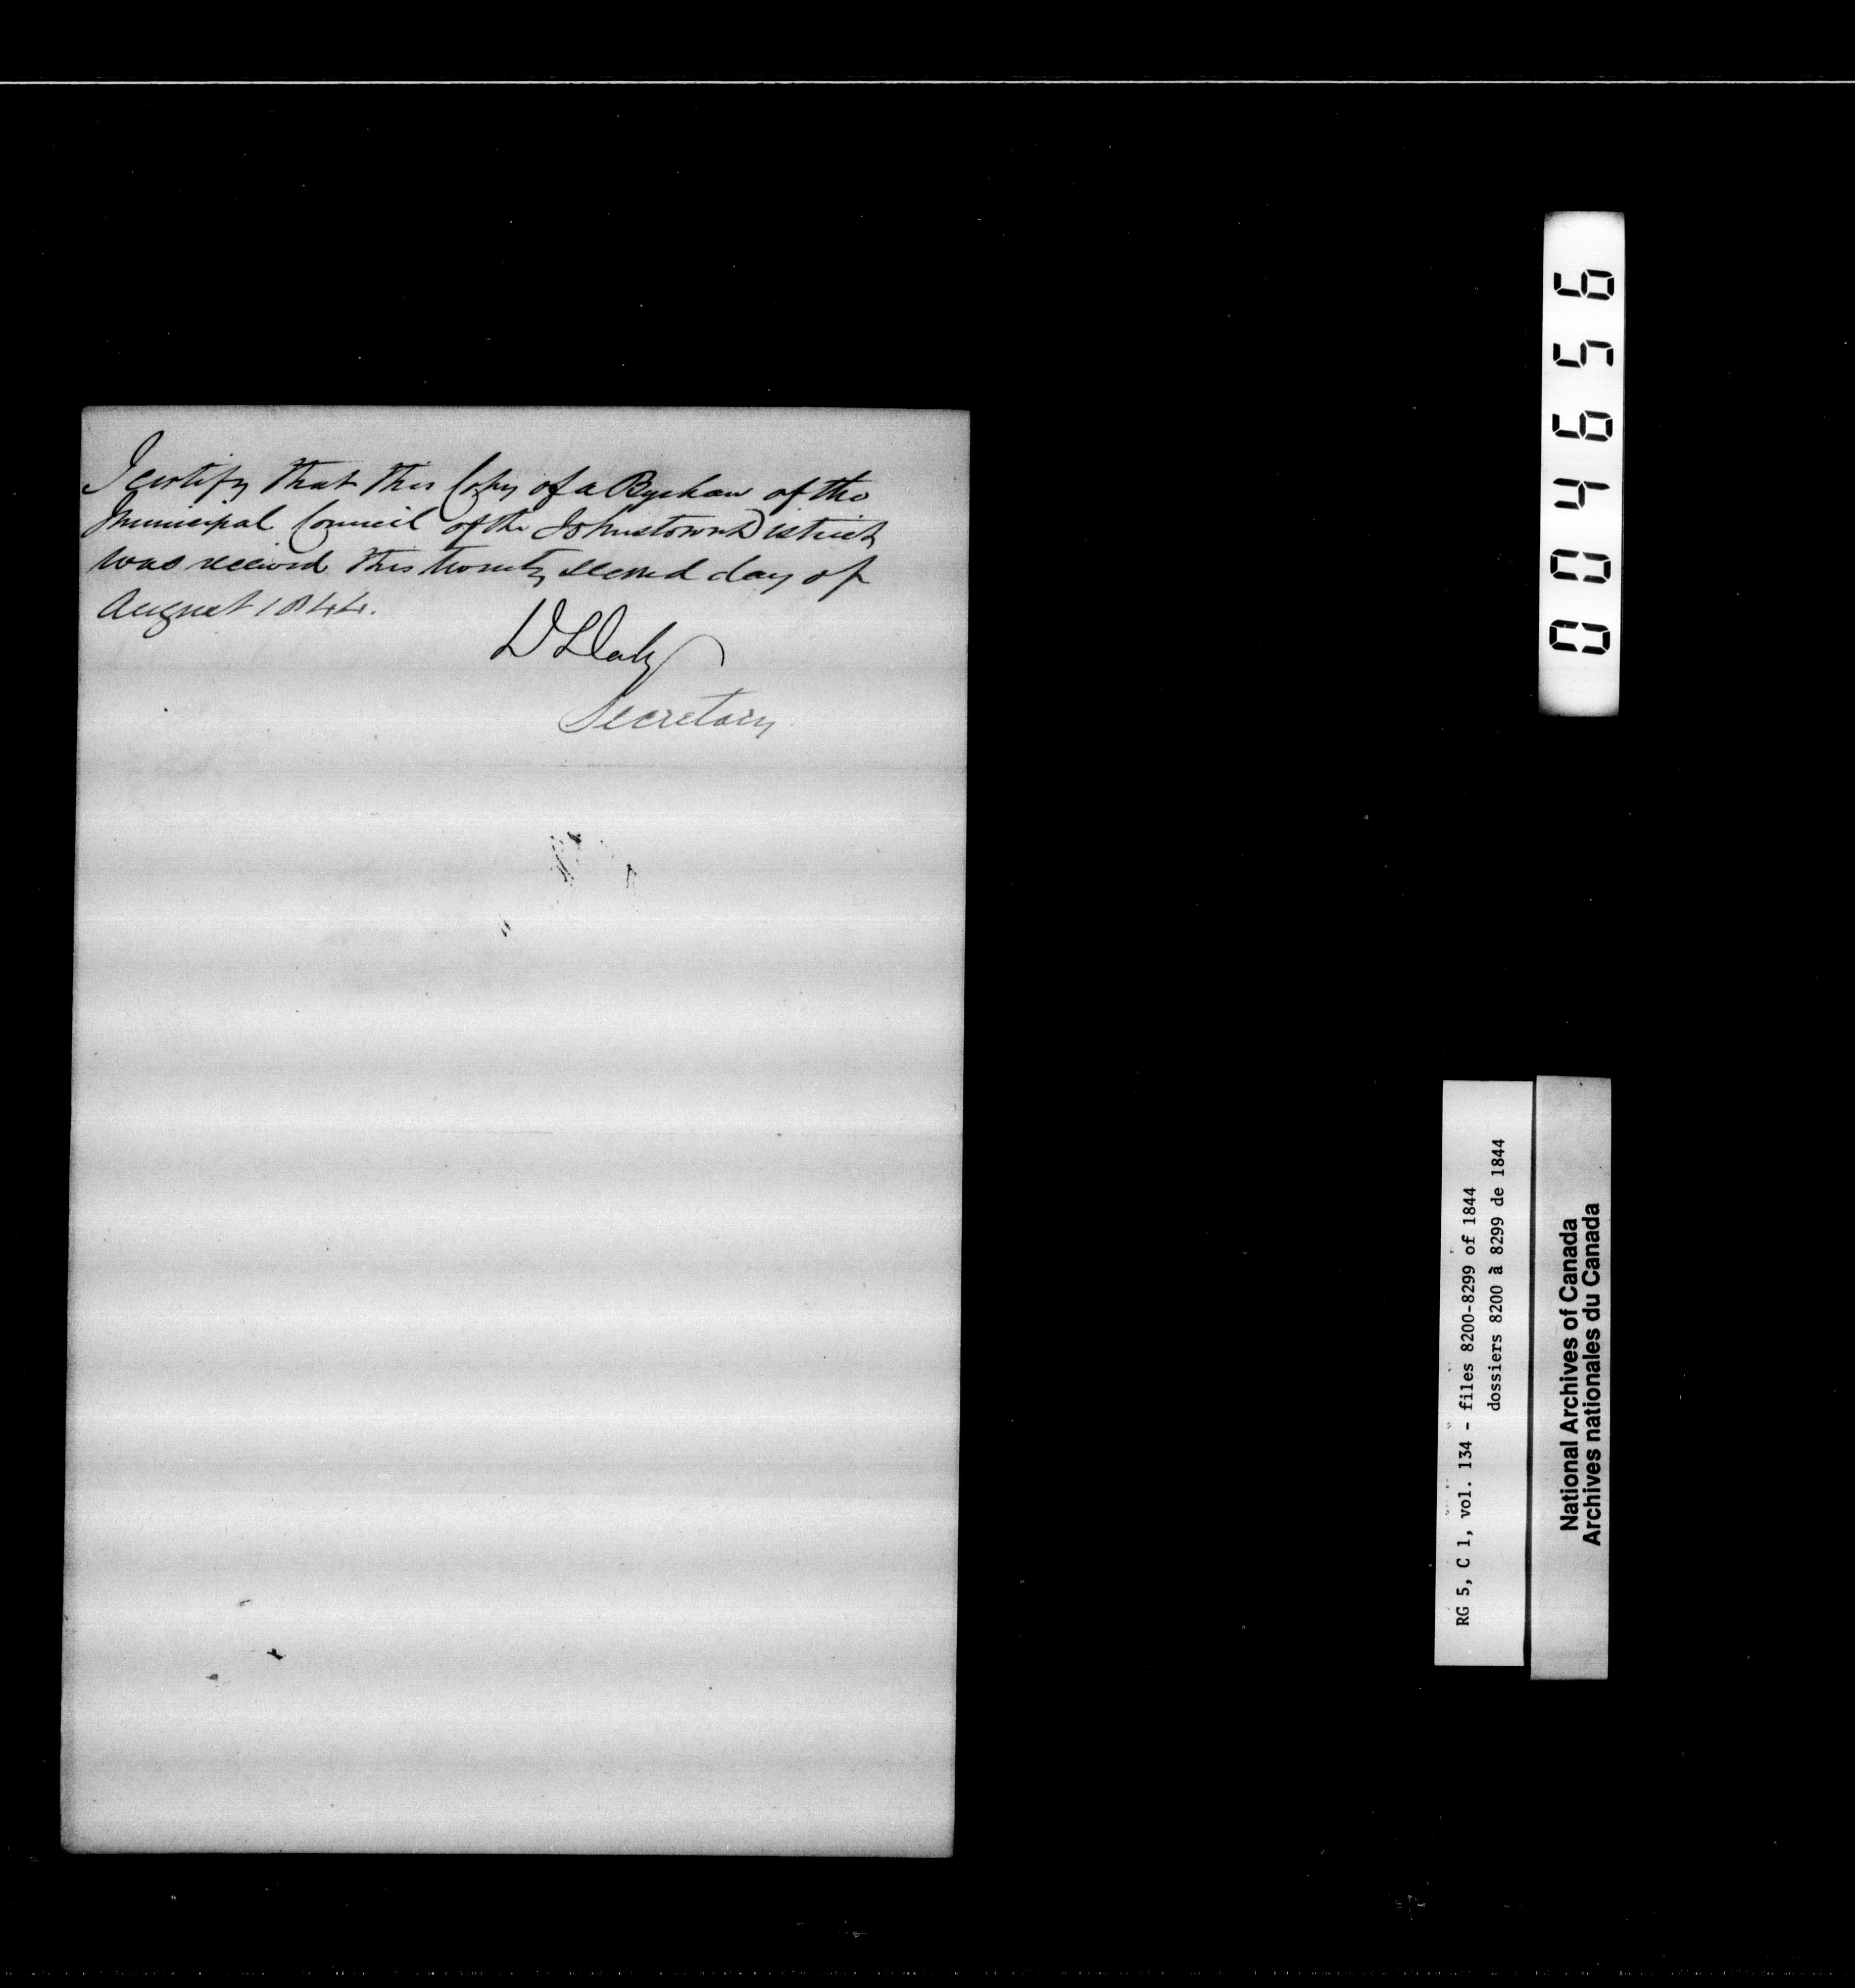 I certify that this Copy of a Bye Law of the
Municipal Council of the Johnstown District
was received this twenty second day of
August 1844.
D Daly
Secretary
004656
RG 5, C 1, vol. 134 - files 8200-8299 of 1844
dossiers 8200 à 8299 de 1844
National Archives of Canada
Archives nationales du Canada